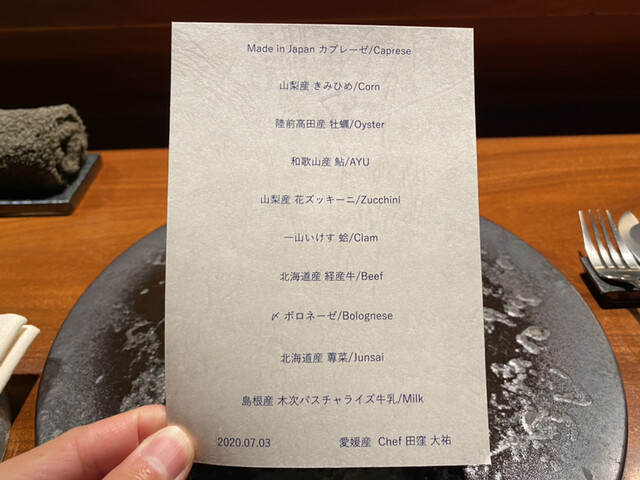 Made in Japan カプレーゼ/Caprese
山梨産 きみひめ/Corn
陸前高田産 牡蠣/Oyster
和歌山産 鮎/AYU
山梨産 花ズッキーニ/Zucchini
一山いけす 蛤/Clam
北海道産 経産牛/Beef
〆 ボロネーゼ/Bolognese
北海道産 蓴菜/Junsai
島根産 木次パスチャライズ牛乳/Milk
2020.07.03 愛媛産 Chef 田窪 大祐